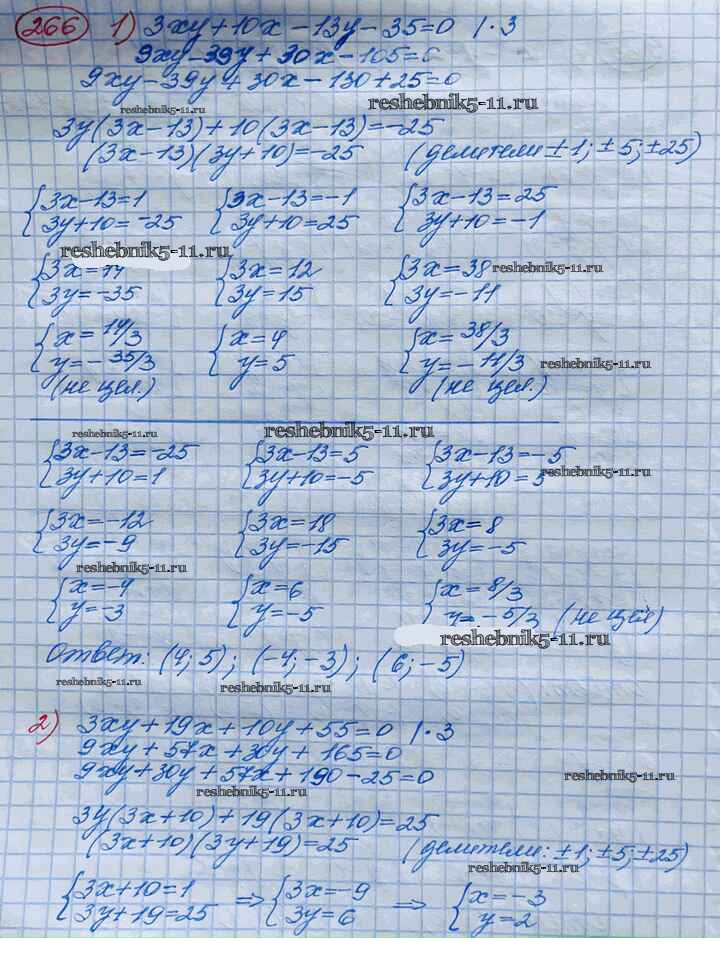 266 1) 3xy+10x-13y-35=0 | · 3
9xy-39y+30x-105=0
9xy-39y+30x-130+25=0
reshebnik5-11.ru
reshebnik5-11.ru
3y(3x-13)+10(3x-13)=-25
(3x-13)(3y+10)=-25 (делители ±1; ±5; ±25)
{3x-13=1 {3x-13=-1 {3x-13=25
3y+10=-25 3y+10=25 3y+10=-1
reshebnik5-11.ru
{3x=14 {3x=12 {3x=38 reshebnik5-11.ru
3y=-35 3y=15 3y=-11
{x=14/3 {x=4 {x=38/3
y=-35/3 y=5 y=-11/3 reshebnik5-11.ru
(не цел.) (не цел.)
reshebnik5-11.ru reshebnik5-11.ru
{3x-13=-25 {3x-13=5 {3x-13=-5
3y+10=1 3y+10=-5 3y+10=5
reshebnik5-11.ru
{3x=-12 {3x=18 {3x=8
3y=-9 3y=-15 3y=-5
reshebnik5-11.ru
{x=-4 {x=6 {x=8/3
y=-3 y=-5 y=-5/3 (не цел)
reshebnik5-11.ru
Ответ: (4; 5); (-4; -3); (6; -5)
reshebnik5-11.ru reshebnik5-11.ru
2) 3xy+19x+10y+55=0 | · 3
9xy+57x+30y+165=0
9xy+30y+57x+190-25=0
reshebnik5-11.ru
reshebnik5-11.ru
3y(3x+10)+19(3x+10)=25
(3x+10)(3y+19)=25 (делители: ±1; ±5; ±25)
reshebnik5-11.ru
{3x+10=1 => {3x=-9 => {x=-3
3y+19=25 3y=6 y=2
reshebnik5-11.ru